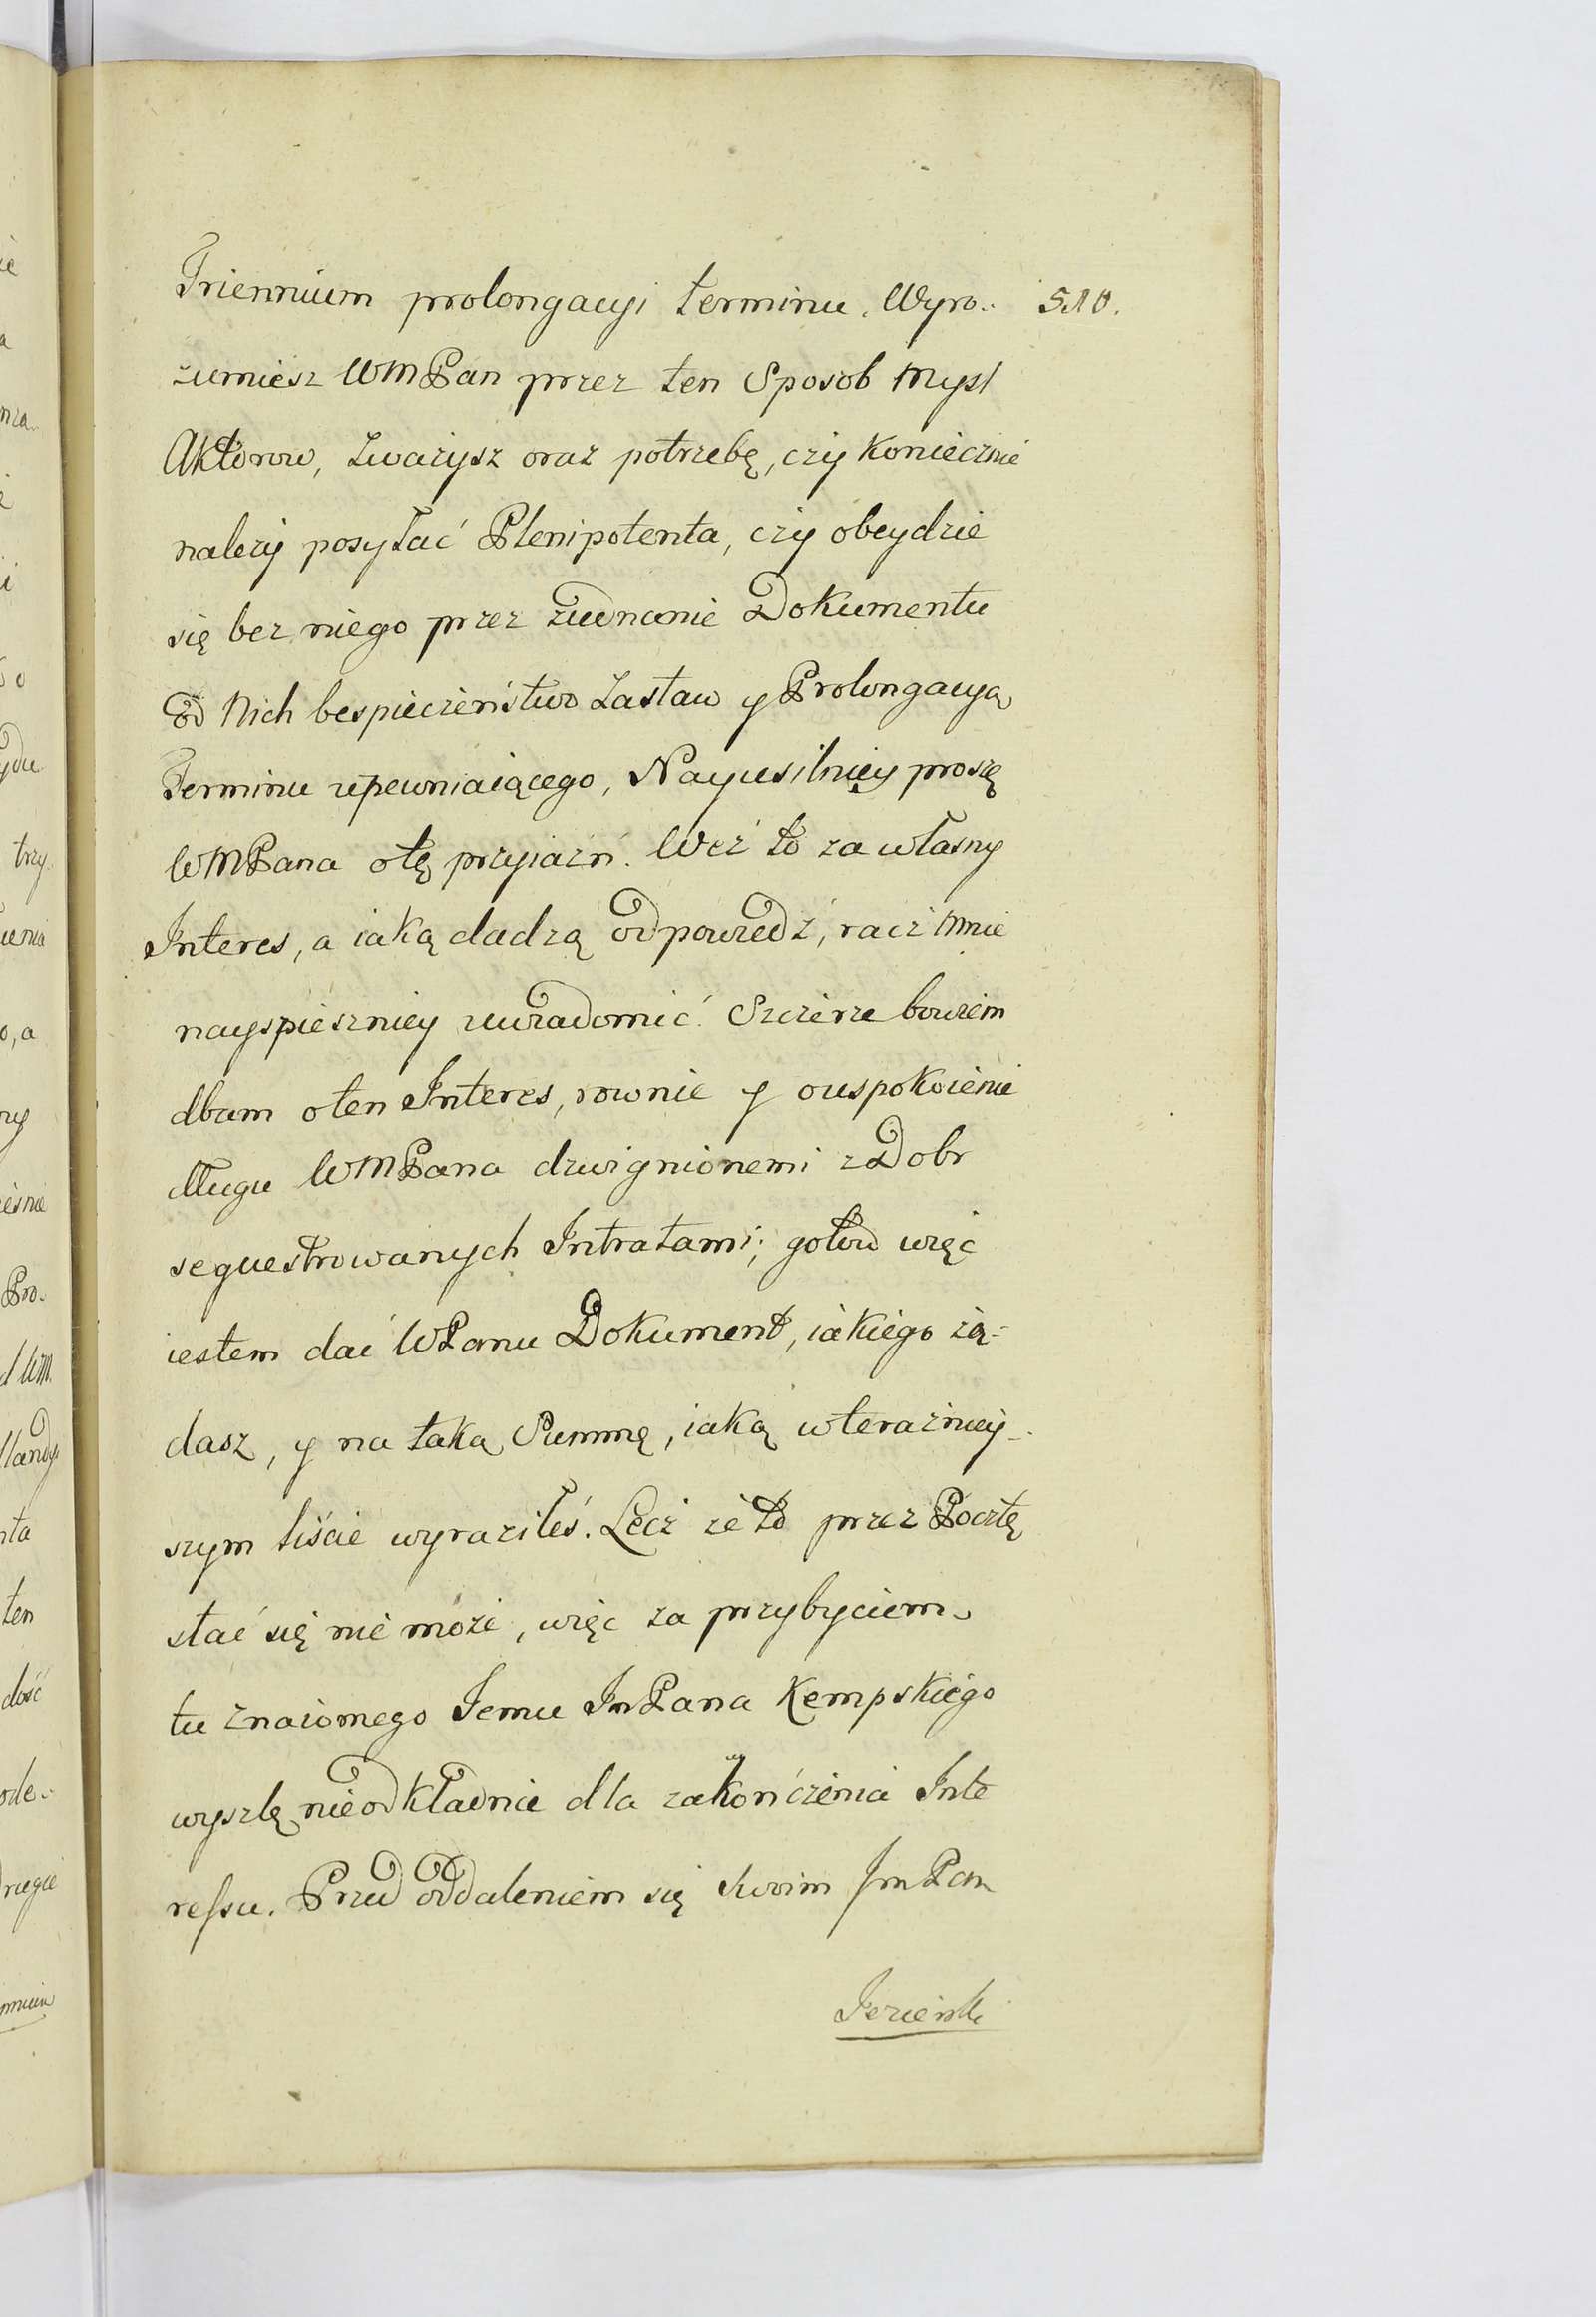 Triennium prolongacyi terminu. Wyro-
510.
zumiesz WMPan przez ten Sposob Mysl
Aktorow, Zwazysz oraz potrzebę, czy Koniecznie
nalezy posyłać Plenipotenta, czy obeydzie
się bez niego przez ziednanie Dokumentu
od Nich bespieczeństwo Zastaw y Prolongacyą
Terminu upewniaiącego, Nayusilniey proszę
WMPana otę przyiazń. Weź to za własny
Interes, a iaką dadzą odpowiedź, racz mnie
nayspieszniey uwiadomić. Szczerze bowiem
dbam oten Interes, rownie y ouspokoienie
długu WMPana dzwignionemi z Dobr
sequestrowanych Intratami; gotow więc
iestem dać WPanu Dokument, iakiego żą-
dasz, y na taką Summę, iaką wteraźniey-
szym liście wyraziłeś. Lecz że to przez Pocztę
stać się nie może, więc za przybyciem
tu znaiomego Jemu ImPana Kempskiego
wyszlę nieodkładnie dla zakończenia Inte
ressu. Przed oddaleniem się swoim ImPan
Jezierski